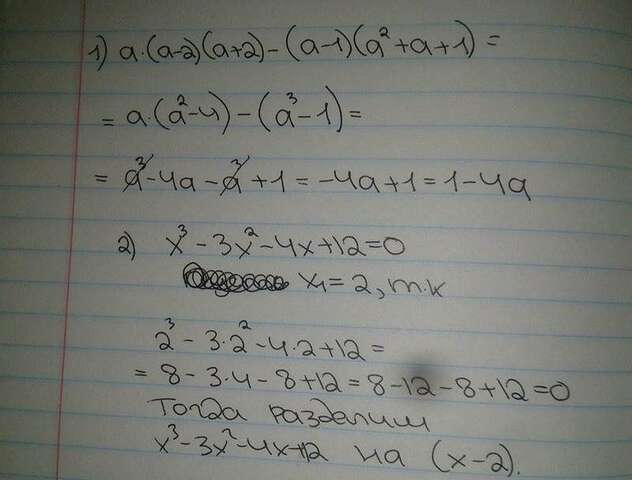 1) a·(a-2)(a+2)-(a-1)(a²+a+1)=
=a·(a²-4)-(a³-1)=
=a³-4a-a³+1=-4a+1=1-4a
2) x³-3x²-4x+12=0
x₁=2, т.к
2³-3·2²-4·2+12=
=8-3·4-8+12=8-12-8+12=0
Тогда разделим
x³-3x²-4x+12 на (x-2).